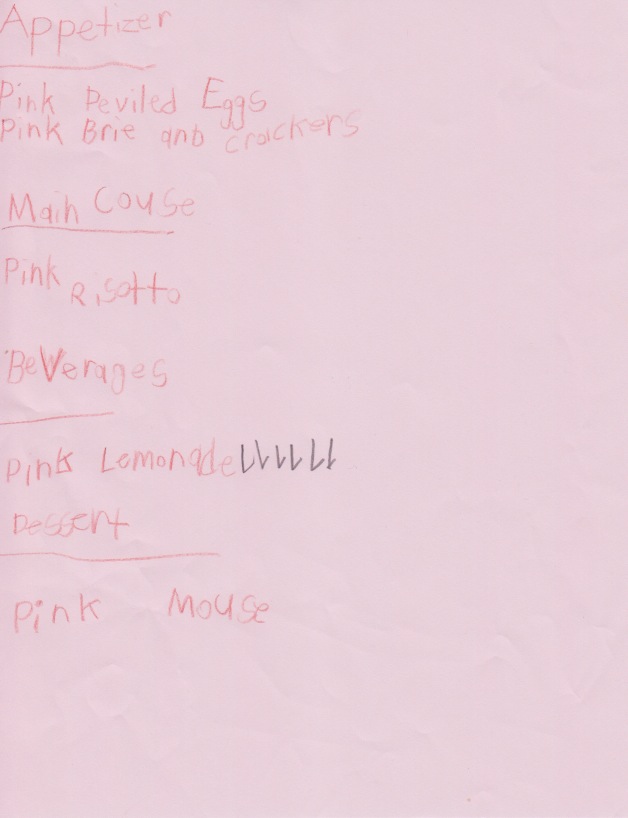 Appetizer
Pink Deviled Eggs
Pink Brie anb crackers
Main Couse
Pink Risotto
Beverages
Pink Lemonade
Dessert
Pink Mouse